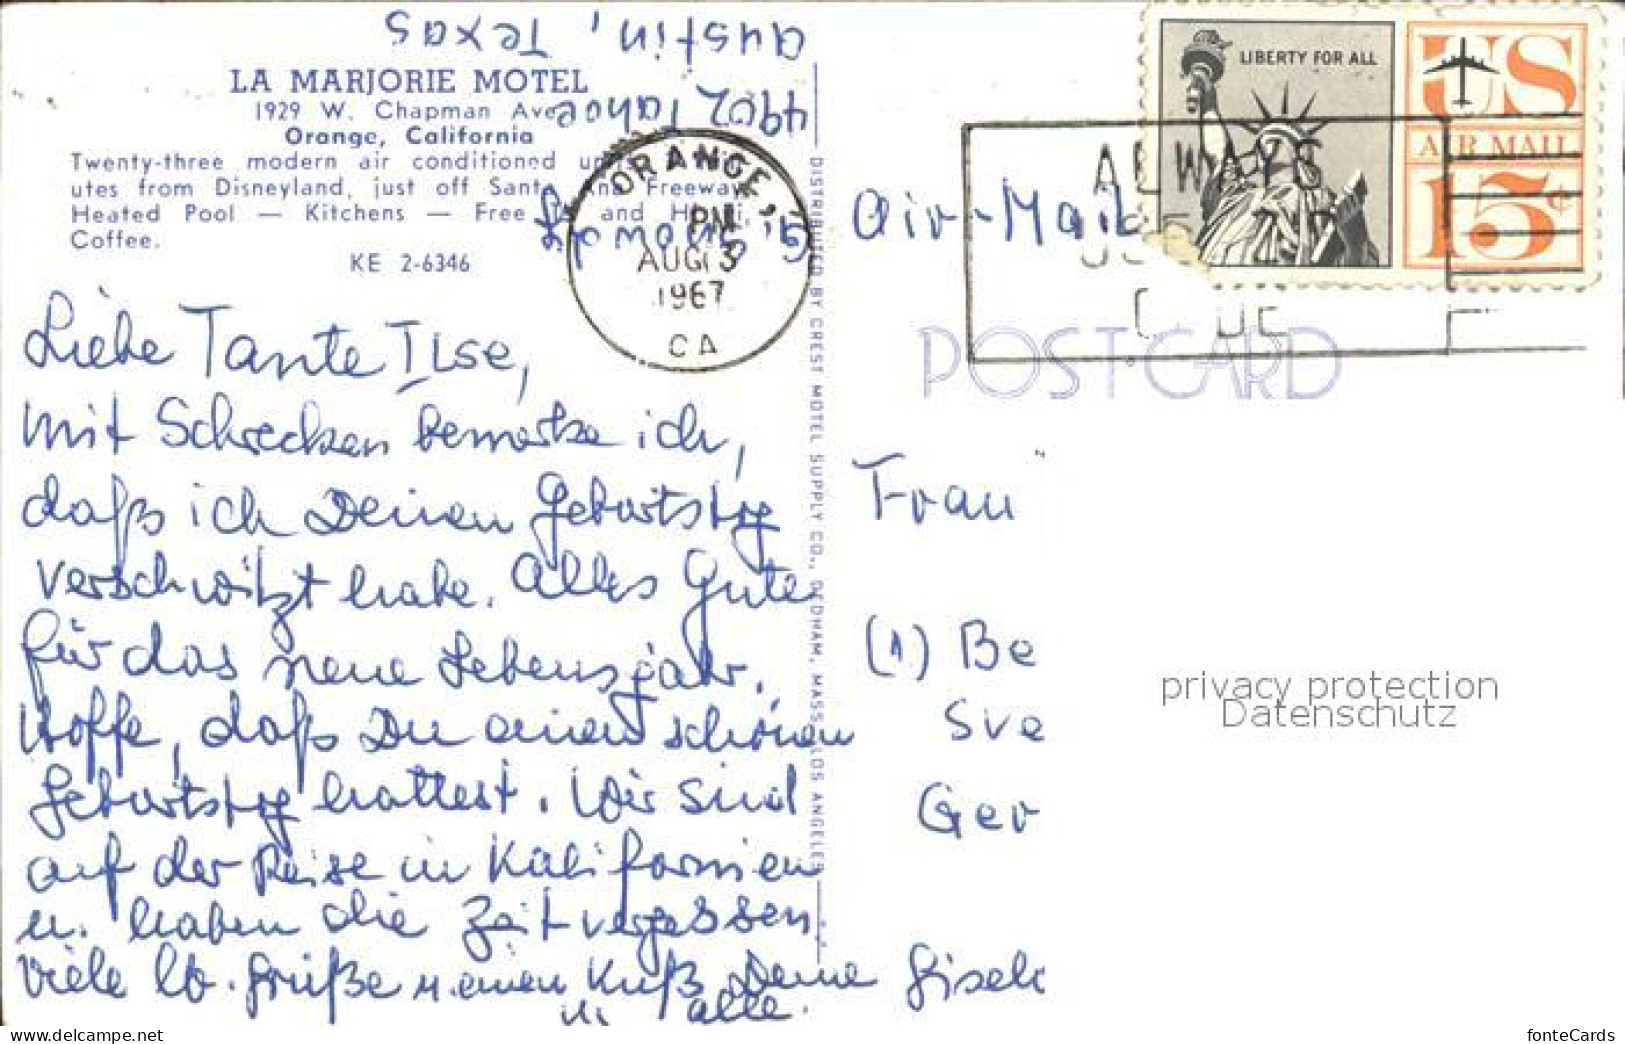 Austin, Texas
4902 Tahoe
LA MARJORIE MOTEL
1929 W. Chapman Ave
Orange, California
Twenty-three modern air conditioned
utes from Disneyland, just off Santa Ana Freeway.
Heated Pool — Kitchens — Free and
Coffee.
KE 2-6346
ORANGE,
PM
AUG 3
1967
CA
Liebe Tante Ilse,
mit Schrecken bemerke ich,
daß ich Deinen Geburtstag
verschwitzt habe. Alles Gute
für das neue Lebensjahr.
Hoffe, daß Du einen schönen
Geburtstag hattest. Wir sind
auf der Reise in Kalifornien
u. haben die Zeit vergessen
Viele lb. Grüße u. einen Kuß Deine Gisel
u. alle.
DISTRIBUTED BY CREST MOTEL SUPPLY CO., DEDHAM, MASS. LOS ANGELES
LIBERTY FOR ALL
US
AIR MAIL
15¢
ALWAYS
USE ZIP
CODE
Air-Mail
POSTCARD
Frau
(1) Be
Sve
Ger
privacy protection
Datenschutz
fonteCards